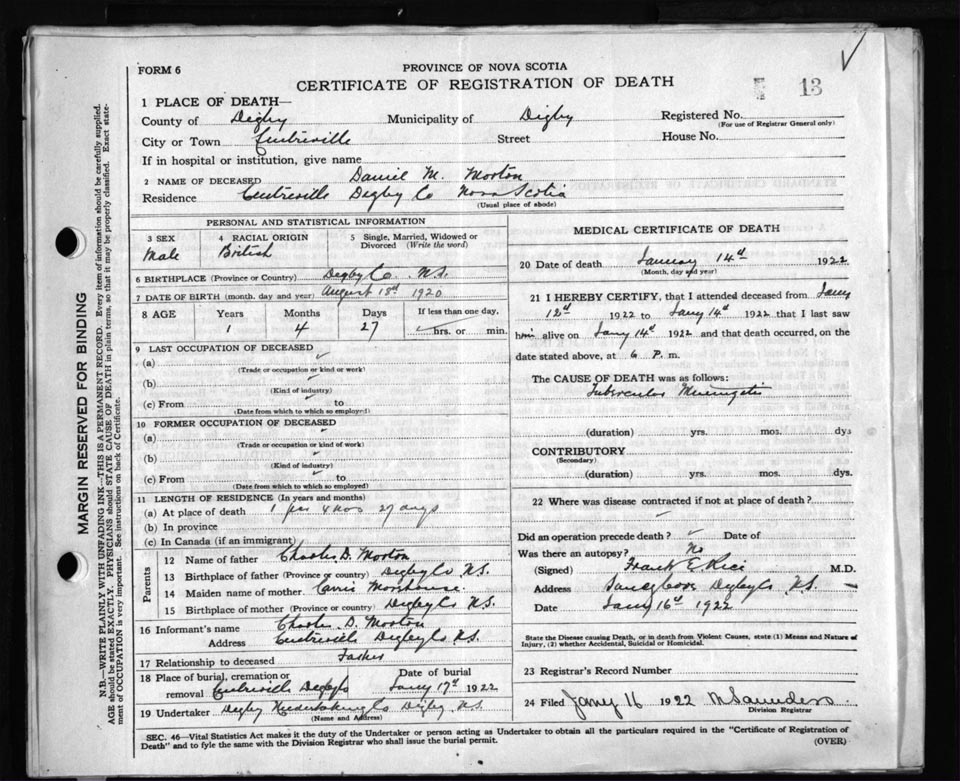 FORM 6
PROVINCE OF NOVA SCOTIA
CERTIFICATE OF REGISTRATION OF DEATH
13
1 PLACE OF DEATH—
County of Digby Municipality of Digby Registered No.
(For use of Registrar General only)
City or Town Centreville Street House No.
If in hospital or institution, give name
2 NAME OF DECEASED Daniel M. Morton
Residence Centreville Digby Co Nova Scotia
(Usual place of abode)
PERSONAL AND STATISTICAL INFORMATION
3 SEX 4 RACIAL ORIGIN 5 Single, Married, Widowed or Divorced (Write the word)
Male British
6 BIRTHPLACE (Province or Country) Digby Co. N.S.
7 DATE OF BIRTH (month, day and year) August 18d 1920
8 AGE Years Months Days If less than one day,
1 4 27 hrs. or min.
9 LAST OCCUPATION OF DECEASED
(a)
(Trade or occupation or kind or work)
(b)
(Kind of industry)
(c) From to
(Date from which to which so employed)
10 FORMER OCCUPATION OF DECEASED
(a)
(Trade or occupation or kind of work)
(b)
(Kind of industry)
(c) From to
(Date from which to which so employed)
11 LENGTH OF RESIDENCE (In years and months)
(a) At place of death 1 4 mos 27 days
(b) In province
(c) In Canada (if an immigrant)
Parents
12 Name of father Charles D. Morton
13 Birthplace of father (Province or country) Digby Co N.S.
14 Maiden name of mother Carrie Morehouse
15 Birthplace of mother (Province or country) Digby Co N.S.
16 Informant's name Charles D. Morton
Address Centreville Digby Co N.S.
17 Relationship to deceased Father
18 Place of burial, cremation or removal Centreville Digby Co Date of burial Jany 17d 1922
19 Undertaker Digby Undertaking Co Digby N.S.
(Name and Address)
MEDICAL CERTIFICATE OF DEATH
20 Date of death January 14d 1922
(Month, day and year)
21 I HEREBY CERTIFY, that I attended deceased from Jany
12d 1922 to Jany 14d 1922 that I last saw
him alive on Jany 14d 1922 and that death occurred, on the
date stated above, at 6 P. m.
The CAUSE OF DEATH was as follows:
Tubercular Meningitis
(duration) yrs. mos. dys
CONTRIBUTORY
(Secondary)
(duration) yrs. mos. dys.
22 Where was disease contracted if not at place of death?
Did an operation precede death? Date of
Was there an autopsy? No
(Signed) Frank E Rice M.D.
Address Sandy Cove Digby Co N.S.
Date Jany 16d 1922
State the Disease causing Death, or in death from Violent Causes, state (1) Means and Nature of
Injury, (2) whether Accidental, Suicidal or Homicidal.
23 Registrar's Record Number
24 Filed Jany 16 1922 M Saunders
Division Registrar
SEC. 46—Vital Statistics Act makes it the duty of the Undertaker or person acting as Undertaker to obtain all the particulars required in the "Certificate of Registration of
Death" and to fyle the same with the Division Registrar who shall issue the burial permit.
(OVER)
MARGIN RESERVED FOR BINDING
N.B.—WRITE PLAINLY WITH UNFADING INK—THIS IS A PERMANENT RECORD. Every item of information should be carefully supplied.
AGE should be stated EXACTLY. PHYSICIANS should STATE CAUSE OF DEATH in plain terms, so that it may be properly classified. Exact state-
ment of OCCUPATION is very important. See instructions on back of Certificate.